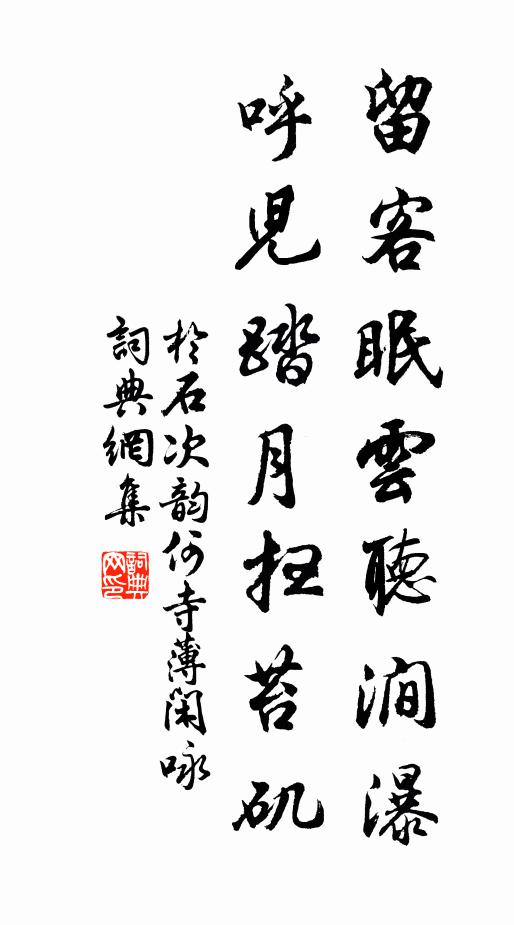 留客眠雲聽澗瀑
呼兒踏月扫苔矶
於石次韵何寺薄閑咏
詞典網集
詞典網印